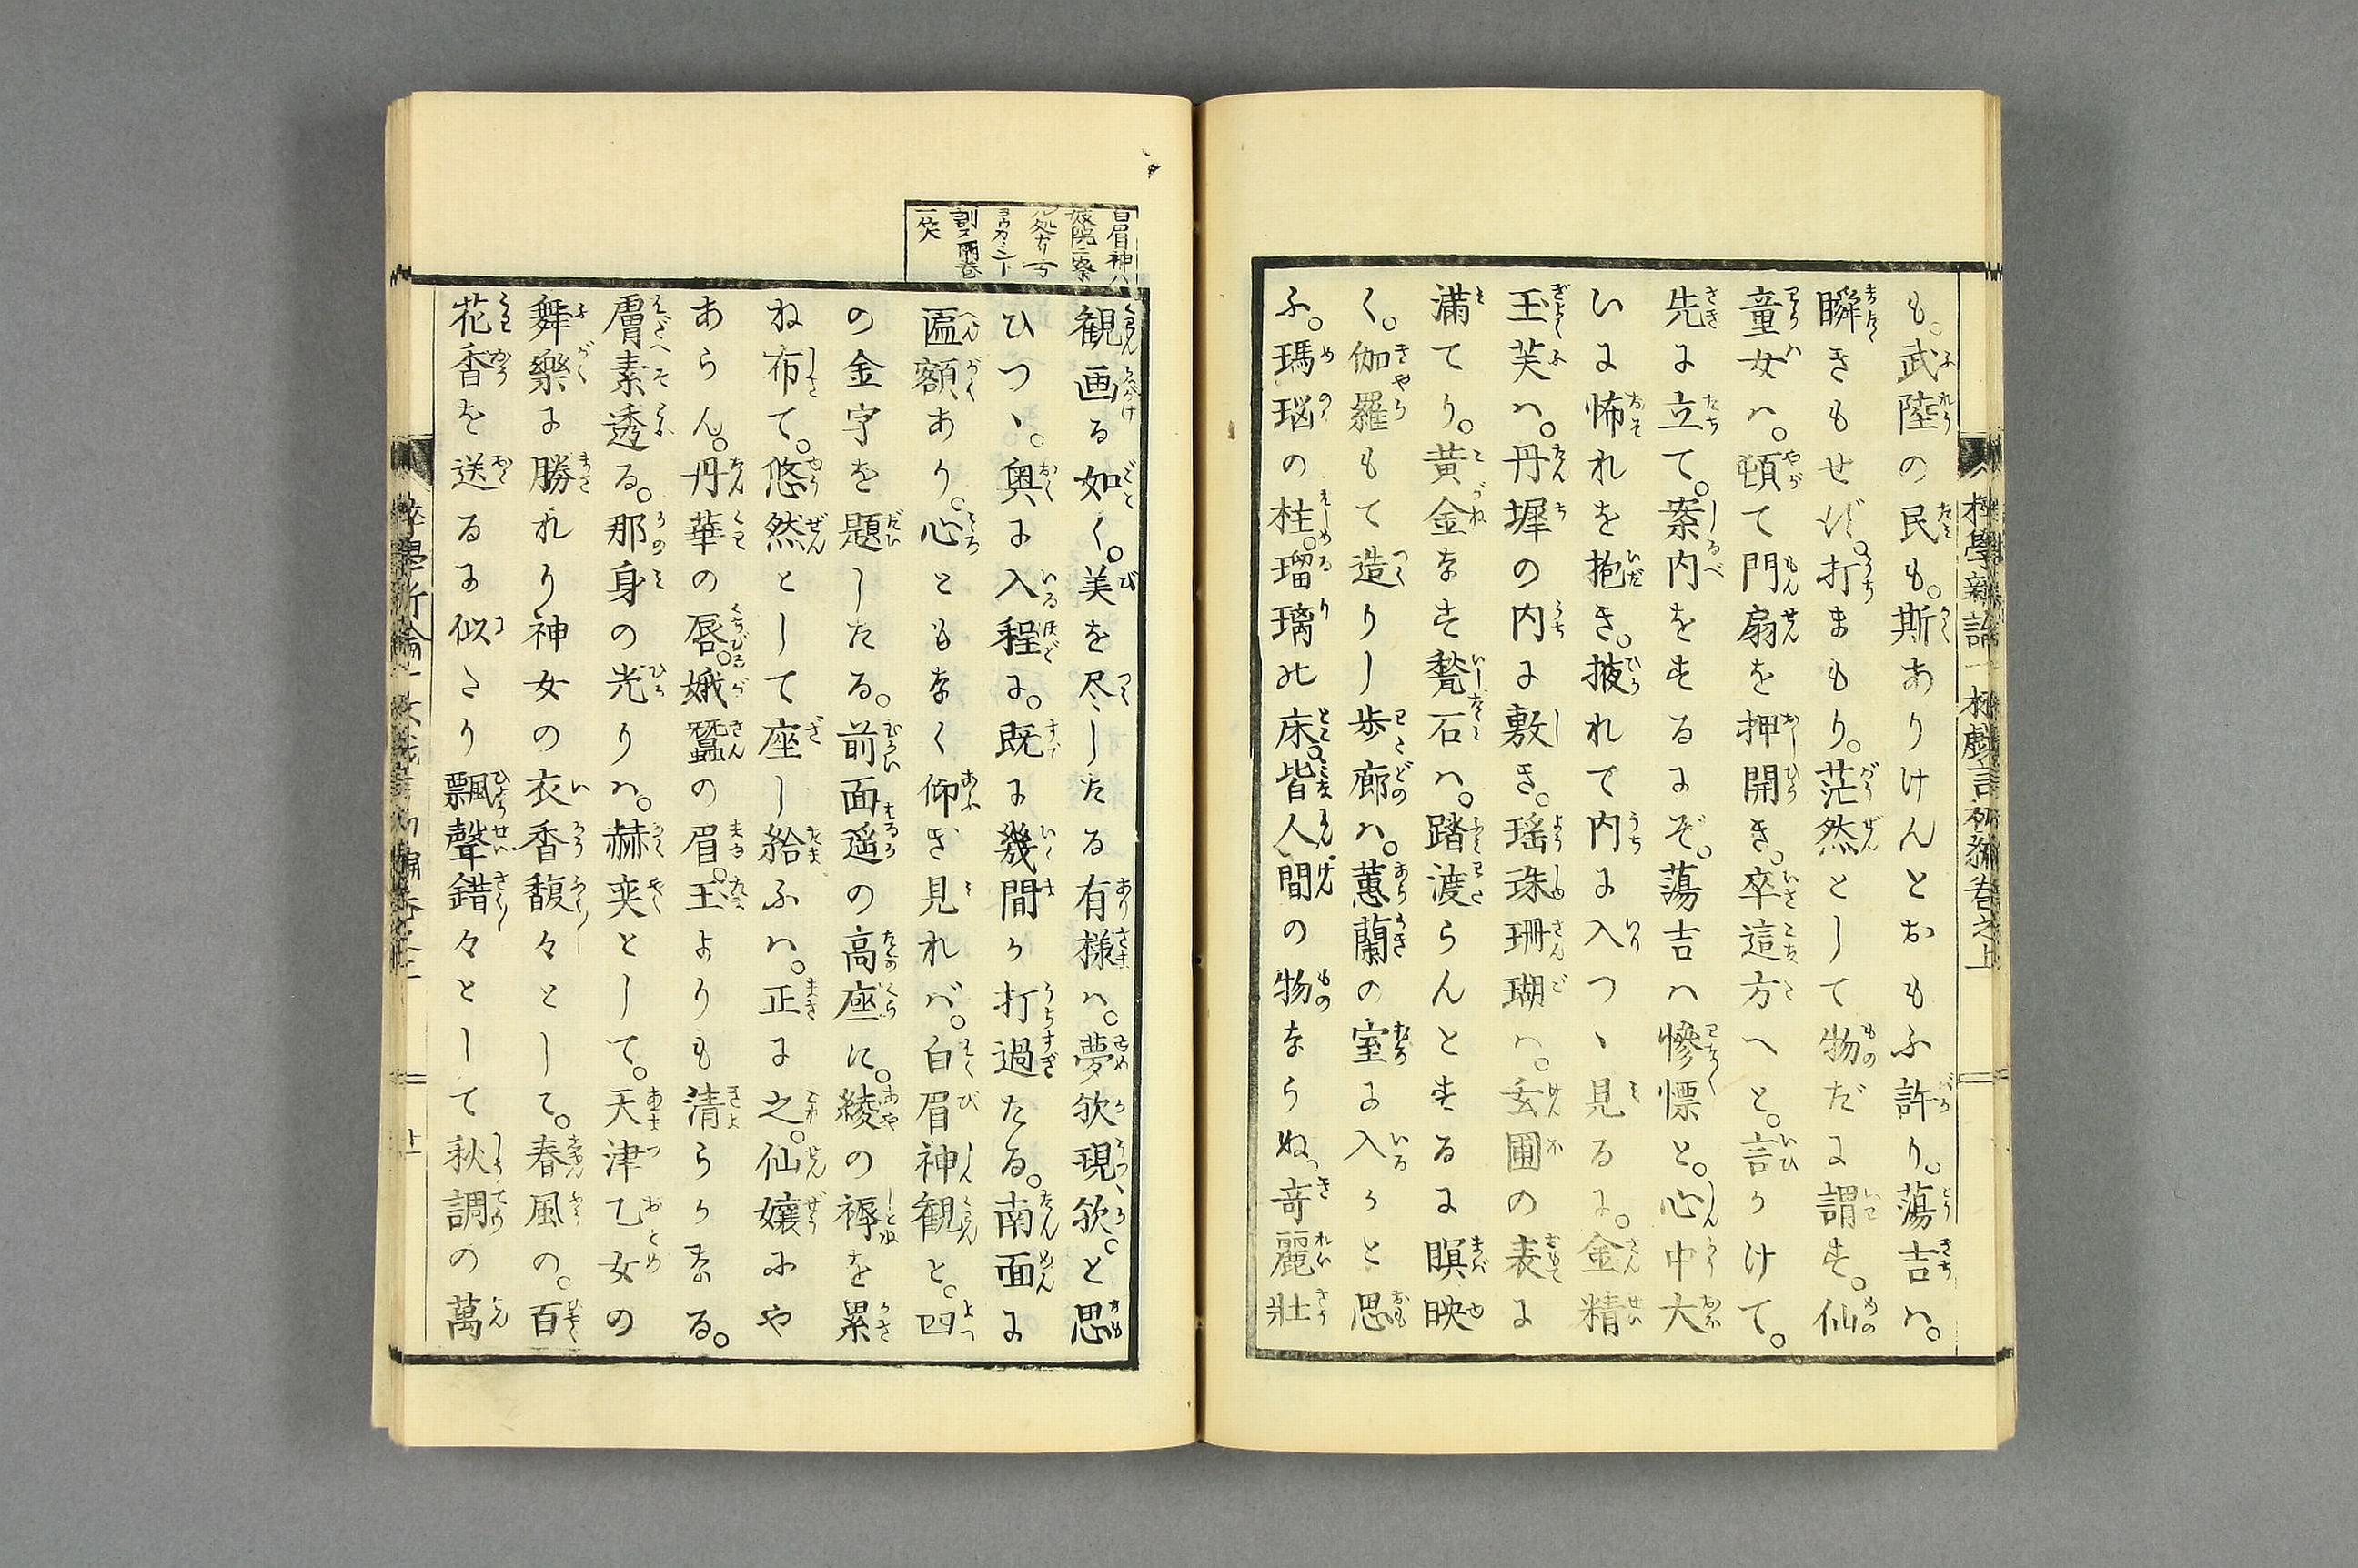 も。武陸の民も。斯ありけんとおもふ許り。蕩吉ハ。
瞬きもせず。打まもり。茫然として物だに謂ず。仙
童女ハ。頓て門扇を押開き。卒這方へと。言かけて。
先に立て。案内をするにぞ。蕩吉ハ慘慓と。心中大
いに怖れを抱き。掖れて内に入つゝ見るに。金精
玉芙ハ。丹墀の内に敷き。瑤珠珊瑚ハ。玄圃の表に
満てり。黄金なす甃石ハ。踏渡らんとするに瞑眏
く。伽羅もて造りし歩廊ハ。蕙蘭の室に入かと思
ふ。瑪瑙の柱。瑠璃の床。皆人間の物ならぬ。奇麗壮
観画る如く。美を尽したる有様ハ。夢欤現欤。と思
ひつゝ。奥に入程に。既に幾間か打過たる。南面に
匾額あり。心ともなく仰ぎ見れバ。白眉神観と。四
の金字を題したる。前面遥の高座に。綾の褥を累
ね布て。悠然として座し給ふハ。正に之。仙嬢にや
あらん。丹華の唇。娥蠶の眉。玉よりも清らかなる。
膚素透る。那身の光りハ。赫奕として。天津乙女の
舞樂に勝れり神女の衣香馥々として。春風の。百
花香を送るに似たり飄聲錯々として秋調の萬
白眉神ハ
妓院ニ祭
ル処ナリ一万
訓ス兩巻
一笑